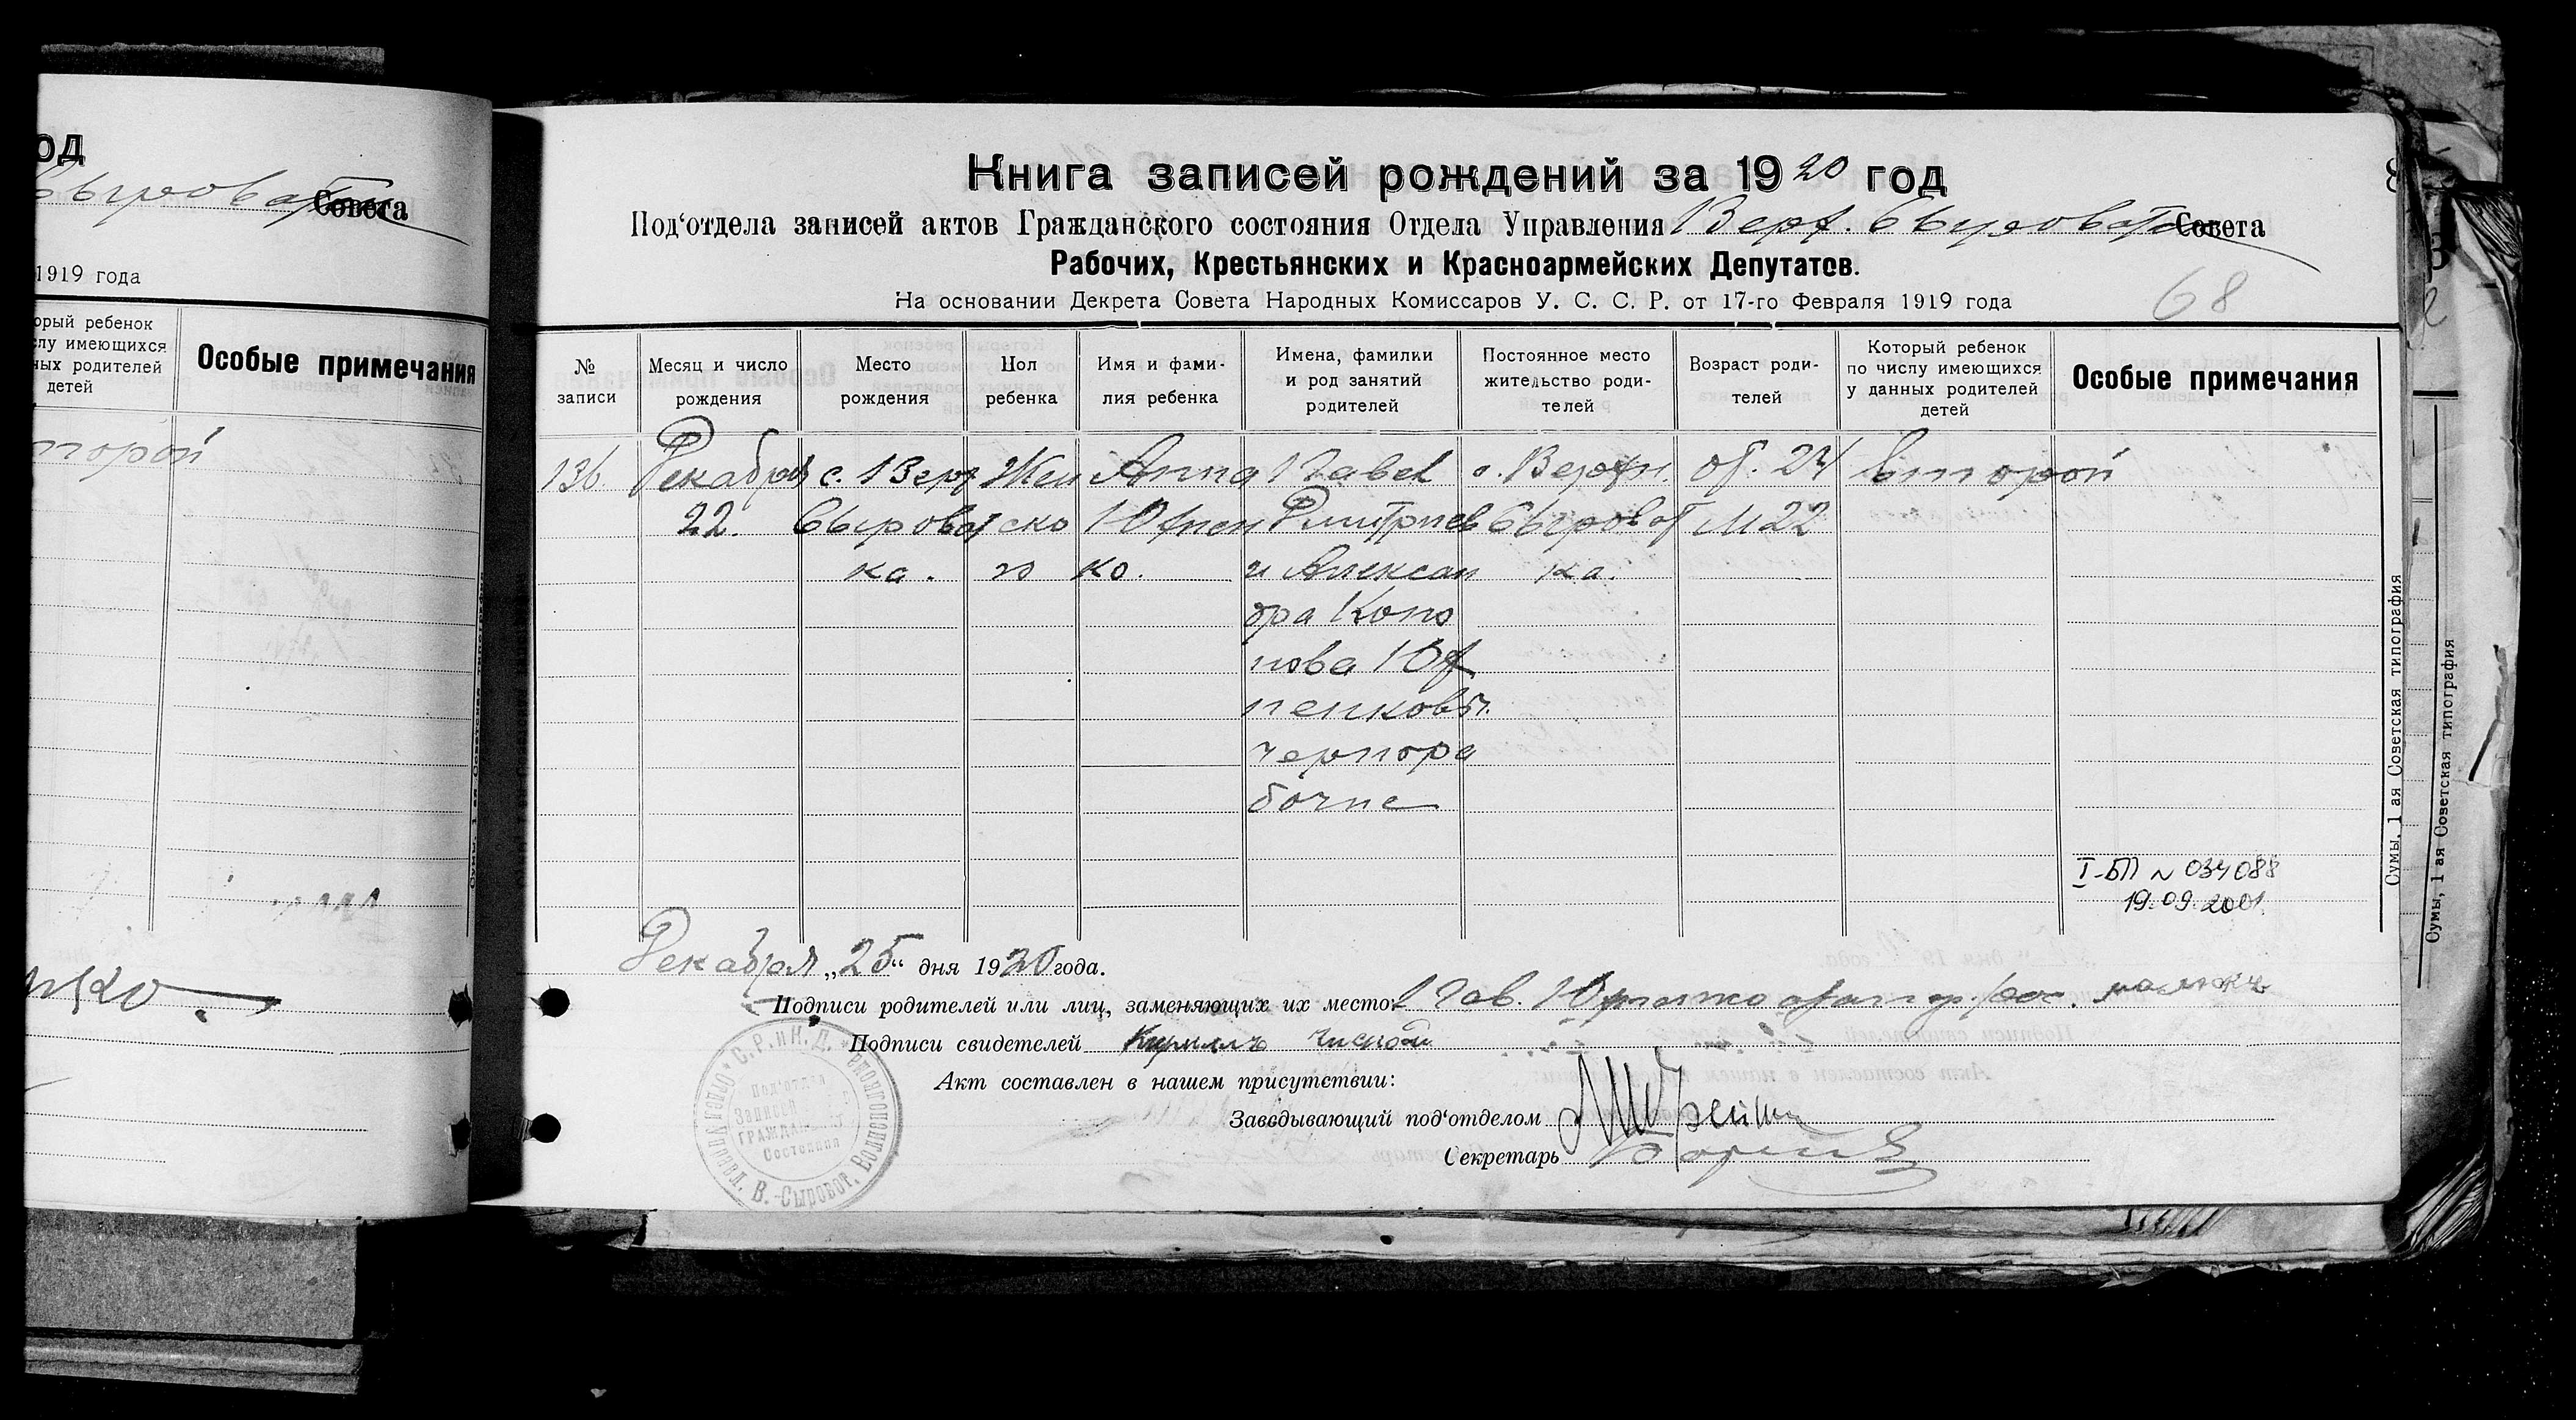 од
Совета
1919 года
орый ребенок
слу имеющихся
ных родителей
детей
Особые примечания
торой
Книга записей рождений за 1920 год
Под'отдела записей актов Гражданского состояния Отдела Управления Верх. Сыроват Совета
Рабочих, Крестьянских и Красноармейских Депутатов.
На основании Декрета Совета Народных Комиссаров У. С. С. Р. от 17-го Февраля 1919 года
68
№ записи
Месяц и число рождения
Место рождения
Пол ребенка
Имя и фамилия ребенка
Имена, фамилии и род занятий родителей
Постоянное место жительство родителей
Возраст родителей
Который ребенок по числу имеющихся у данных родителей детей
Особые примечания
136. Декабря с. Верх Жен Анна Павел с. Верхн. от. 24 второй
22. Сыроват ско Юхнен Дмитриев Сыроват М 22
ка. го ко. и Алексан ка.
дра Коно
нова Юх
ненковы.
черпора
бочие
I-БП № 034088
19.09.2001.
Декабря „25“ дня 1920 года.
Подписи родителей или лиц, заменяющих их место:
Подписи свидетелей Кириллъ
Акт составлен в нашем присутствии:
Заведывающий под'отделом
Секретарь
С.Р. и К.Д.
Под'отдел
Записей
ГРАЖДАНСК
Состояния
В.-Сыроват.
Сумы, 1 ая Советская типография
Сумы, 1 ая Советская типография